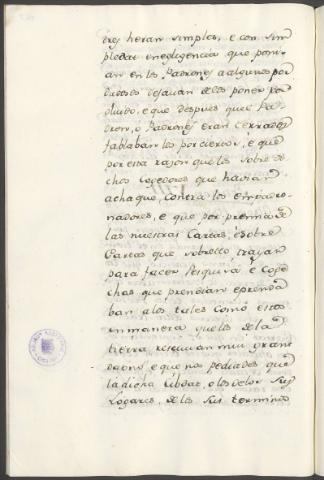 dres heran simples, e con sim
pledat e negligencia que poní
an en los Padrones a algunos por
dadores desauan de los poner por
oluido, e que despues que el Pa
dron, o Padrones eran cerrados
fablaban los por ciertos, e que
por esta rason que los sobre di
chos Cogedores que havian
achaque, contra los empadro
nadores, e que por premia de
las nuestras Cartas, e sobre
Cartas que sobre ello trayan
para facer Pesquisa e Coge
chas que prendian e prenda
ban a los tales como estos
en manera que los de la
tierra resciuian mui grant
daño, e que nos pediades que
la dicha Cibdat, o los de los sus
Logares, de los sus terminos